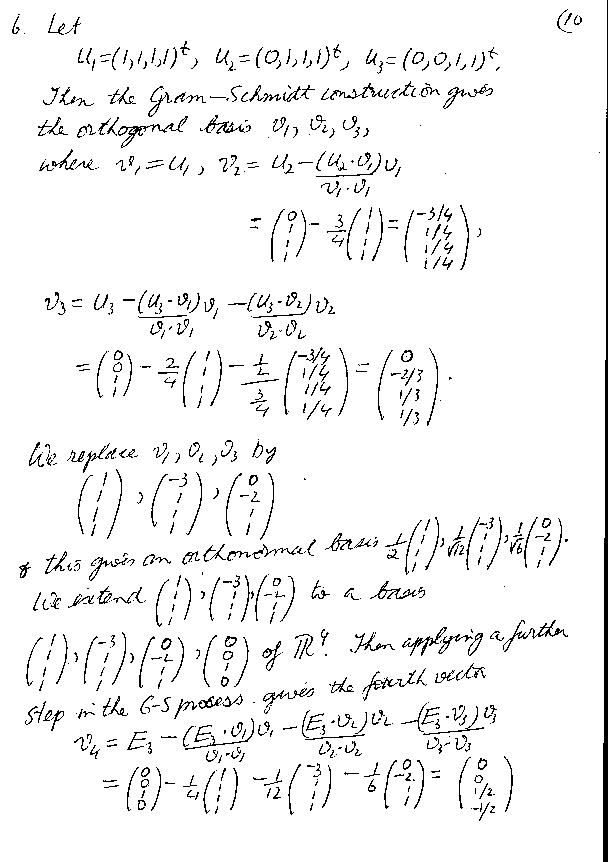 6. Let (10
u₁=(1,1,1,1)ᵗ, u₂=(0,1,1,1)ᵗ, u₃=(0,0,1,1)ᵗ.
Then the Gram–Schmidt construction gives
the orthogonal basis v₁, v₂, v₃,
where v₁=u₁, v₂= u₂ − (u₂·v₁)/(v₁·v₁) v₁
= (0 1 1 1) − 3/4 (1 1 1 1) = (-3/4 1/4 1/4 1/4),
v₃ = u₃ − (u₃·v₁)/(v₁·v₁) v₁ − (u₃·v₂)/(v₂·v₂) v₂
= (0 0 1 1) − 2/4 (1 1 1 1) − (1/2)/(3/4) (-3/4 1/4 1/4 1/4) = (0 -2/3 1/3 1/3).
We replace v₁, v₂, v₃ by
(1 1 1 1), (-3 1 1 1), (0 -2 1 1)
& this gives an orthonormal basis 1/2 (1 1 1 1), 1/√12 (-3 1 1 1), 1/√6 (0 -2 1 1).
We extend (1 1 1 1), (-3 1 1 1), (0 -2 1 1) to a basis
(1 1 1 1), (-3 1 1 1), (0 -2 1 1), (0 0 1 0) of ℝ⁴. Then applying a further
step in the G-S process gives the fourth vector
v₄ = E₃ − (E₃·v₁)/(v₁·v₁) v₁ − (E₃·v₂)/(v₂·v₂) v₂ − (E₃·v₃)/(v₃·v₃) v₃
= (0 0 1 0) − 1/4 (1 1 1 1) − 1/12 (-3 1 1 1) − 1/6 (0 -2 1 1) = (0 0 1/2 -1/2)